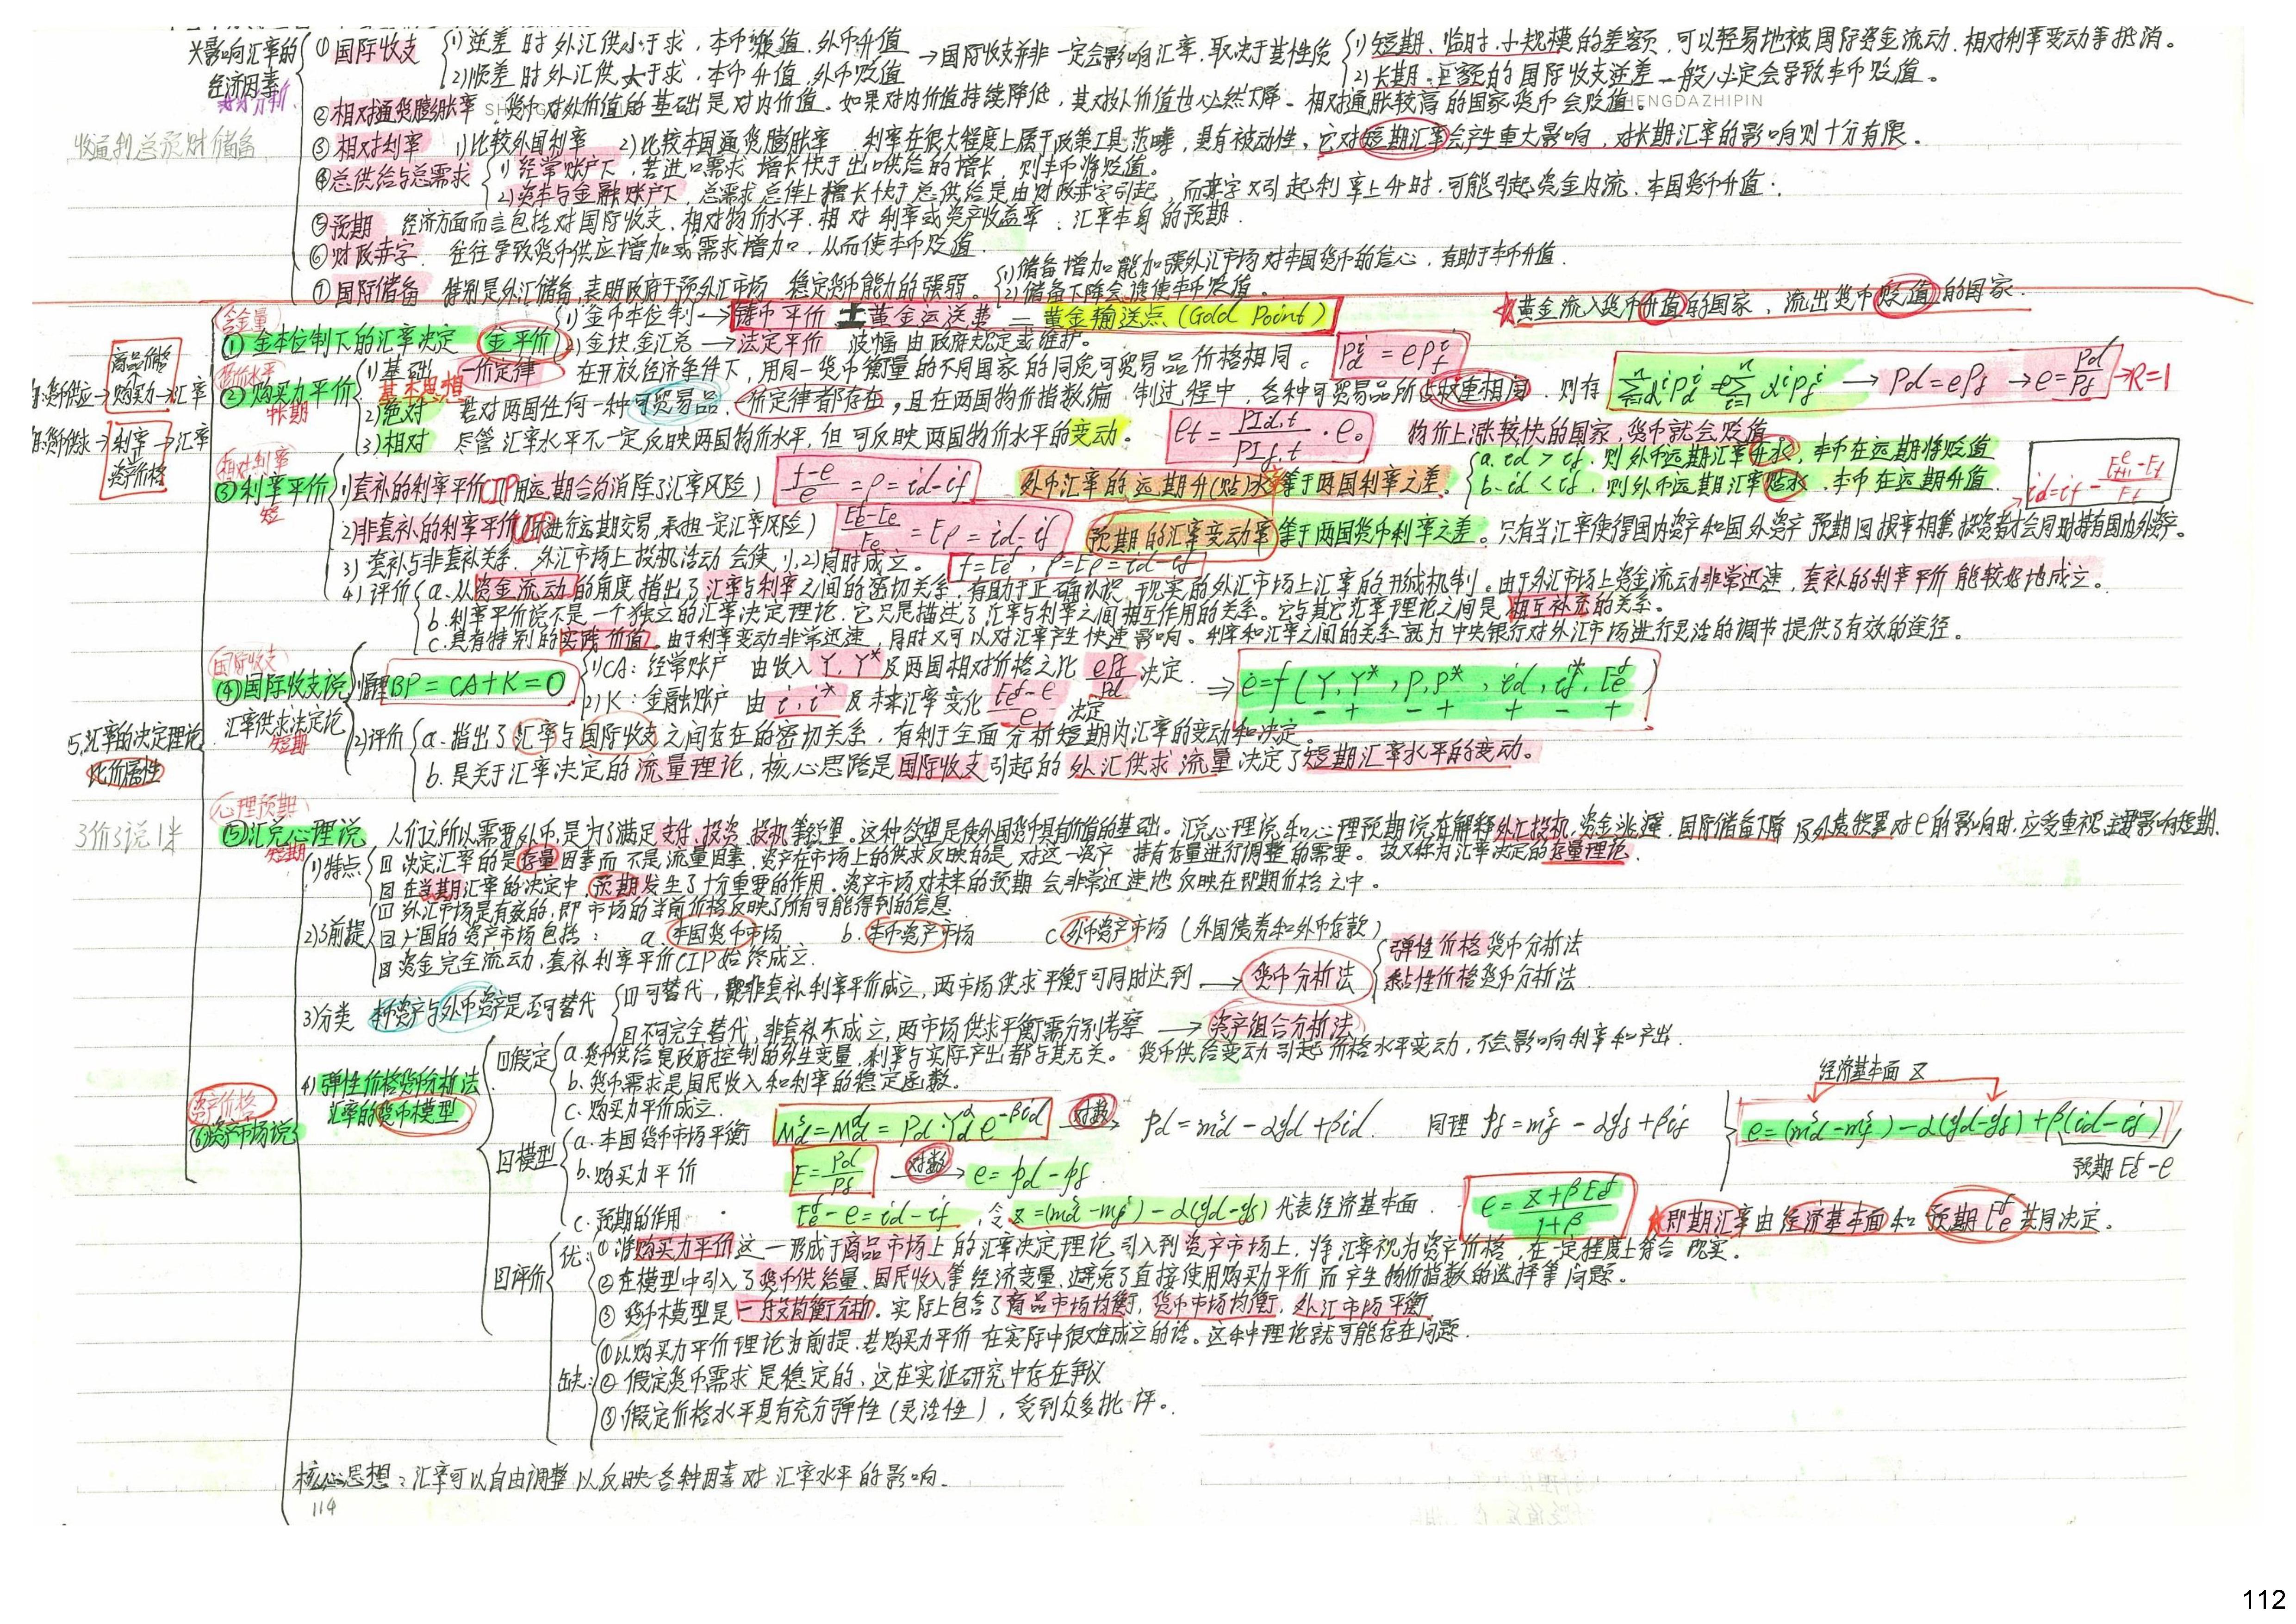 影响汇率的经济因素
收通利总预财储备
① 国际收支 1) 逆差时外汇供小于求，本币贬值，外币升值 → 国际收支并非一定会影响汇率，取决于其性质 1) 短期、临时、小规模的差额，可以轻易地被国际资金流动、相对利率变动等抵消。
2) 顺差时外汇供大于求，本币升值，外币贬值 2) 长期、巨额的国际收支逆差一般必定会导致本币贬值。
② 相对通货膨胀率 货币对外价值的基础是对内价值。如果对内价值持续降低，其对外价值也必然下降。相对通胀较高的国家货币会贬值。
HENGDAZHIPIN
③ 相对利率 1) 比较外国利率 2) 比较本国通货膨胀率 利率在很大程度上属于政策工具范畴，具有被动性。它对短期汇率会产生重大影响，对长期汇率的影响则十分有限。
④ 总供给与总需求 1) 经常账户下，若进口需求增长快于出口供给的增长，则本币将贬值。
2) 资本与金融账户下，总需求总体上增长快于总供给是由财政赤字引起，而赤字又引起利率上升时，可能引起资金内流，本国货币升值。
⑤ 预期 经济方面而言包括对国际收支、相对物价水平、相对利率或资产收益率、汇率本身的预期.
⑥ 财政赤字 往往导致货币供应增加或需求增加，从而使本币贬值.
⑦ 国际储备 特别是外汇储备，表明政府干预外汇市场、稳定货币能力的强弱。 1) 储备增加能加强外汇市场对本国货币的信心，有助于本币升值.
2) 储备下降会诱使本币贬值.
5.汇率的决定理论
比价属性
3价3说1米
商品价格
购买力 → 汇率
利率 → 汇率
资产价格
含金量
① 金本位制下的汇率决定 金平价 1) 金币本位制 → 铸币平价 ± 黄金运送费 = 黄金输送点 (Gold Point) ★黄金流入货币升值的国家，流出货币贬值的国家.
2) 金块、金汇兑 → 法定平价 波幅由政府规定或维护.
② 购买力平价 1) 基础 一价定律 在开放经济条件下，用同一货币衡量的不同国家的同质可贸易品价格相同。 Pdⁱ = ePfⁱ
基本思想
2) 绝对 若对两国任何一种可贸易品，一价定律都存在，且在两国物价指数编制过程中，各种可贸易品所占权重相同，则有 Σαⁱpdⁱ = eΣαⁱpfⁱ → Pd = ePf → e = Pd/Pf → R=1
3) 相对 尽管汇率水平不一定反映两国物价水平，但可反映两国物价水平的变动。 et = PId,t / PIf,t · e₀ 物价上涨较快的国家，货币就会贬值
相对利率
③ 利率平价 短
1) 套补的利率平价CIP(用远期合约消除了汇率风险) (f-e)/e = ρ = id-if 外币汇率的远期升(贴)水等于两国利率之差。 a. id > if，则外币远期汇率升水，本币在远期将贬值
b. id < if，则外币远期汇率贴水，本币在远期升值
2) 非套补的利率平价UIP(不进行远期交易，承担一定汇率风险) = Eρ = id-if 预期的汇率变动率等于两国货币利率之差。只有当汇率使得国内资产和国外资产预期回报率相等，投资者才会同时持有国内外资产。
3) 套补与非套补关系 外汇市场上投机活动会使1)、2)同时成立。 f = Eef, ρ = Eρ = id-if
4) 评价 a. 从资金流动的角度指出了汇率与利率之间的密切关系，有助于正确认识现实的外汇市场上汇率的形成机制。由于外汇市场上资金流动非常迅速，套补的利率平价能较好地成立。
b. 利率平价说不是一个独立的汇率决定理论，它只是描述了汇率与利率之间相互作用的关系。它与其它汇率理论之间是相互补充的关系。
c. 具有特别的实践价值。由于利率变动非常迅速，同时又可以对汇率产生快速影响。利率和汇率之间的关系就为中央银行对外汇市场进行灵活的调节提供了有效的途径。
国际收支
④ 国际收支说 1) 原理 BP = CA+K = 0 1) CA：经常账户 由收入 Y、Y* 及两国相对价格之比 ePf/Pd 决定. ⇒ e = f(Y, Y*, P, P*, id, if*, Eef)
2) K：金融账户 由 i、i* 及未来汇率变化 (Eef-e)/e 决定 - + - + + - +
汇率供求决定论
短期
2) 评价 a. 指出了汇率与国际收支之间存在的密切关系，有利于全面分析短期内汇率的变动和决定.
b. 是关于汇率决定的流量理论，核心思路是国际收支引起的外汇供求流量决定了短期汇率水平的变动。
心理预期
⑤ 汇兑心理说 人们之所以需要外币，是为了满足支付、投资、投机等欲望。这种欲望是使外国货币具有价值的基础。汇兑心理说和心理预期说在解释外汇投机、资金逃避、国际储备下降及外债积累对e的影响时，应受重视，主要影响短期.
短期
资产价格
⑥ 资产市场说
1) 特点 ① 决定汇率的是存量因素而不是流量因素，资产在市场上的供求反映的是对这一资产持有存量进行调整的需要。故又称为汇率决定的存量理论.
② 在当期汇率的决定中，预期发生了十分重要的作用。资产市场对未来的预期会非常迅速地反映在即期价格之中。
2) 3前提 ① 外汇市场是有效的，即市场的当前价格反映了所有可能得到的信息
② 一国的资产市场包括： a. 本国货币市场 b. 本币资产市场 c. 外币资产市场 (外国债券和外币存款)
③ 资金完全流动，套补利率平价CIP始终成立.
3) 分类 本币资产与外币资产是否可替代 ① 可替代，非套补利率平价成立，两市场供求平衡可同时达到 → 货币分析法 弹性价格货币分析法
粘性价格货币分析法
② 不可完全替代，非套补不成立，两市场供求平衡需分别考察 → 资产组合分析法
4) 弹性价格货币分析法
汇率的货币模型
① 假定 a. 货币供给是政府控制的外生变量，利率与实际产出都与其无关。货币供给变动引起价格水平变动，不会影响利率和产出.
b. 货币需求是国民收入和利率的稳定函数。
c. 购买力平价成立.
经济基本面 Z
② 模型 a. 本国货币市场平衡 Mds = Mdd = Pd·Ydα e^-βid 对数 → pd = mds - αyd + βid. 同理 pf = mfs - αyf + βif e = (mds-mfs) - α(yd-yf) + β(id-if)
b. 购买力平价 E = Pd/Pf 对数 → e = pd - pf 预期 Eef - e
c. 预期的作用 Eef - e = id - if，令 Z = (mds-mfs) - α(yd-yf) 代表经济基本面. e = (Z+βEef)/(1+β) ★即期汇率由经济基本面和预期Eef共同决定。
③ 评价 优：① 将购买力平价这一形成于商品市场上的汇率决定理论引入到资产市场上，将汇率视为资产价格，在一定程度上符合现实。
② 在模型中引入了货币供给量、国民收入等经济变量，避免了直接使用购买力平价而产生物价指数的选择等问题。
③ 货币模型是一般均衡分析。实际上包含了商品市场均衡，货币市场均衡，外汇市场平衡
缺：① 以购买力平价理论为前提，若购买力平价在实际中很难成立的话，这种理论就可能存在问题.
② 假定货币需求是稳定的，这在实证研究中存在争议
③ 假定价格水平具有充分弹性(灵活性)，受到众多批评。
核心思想：汇率可以自由调整以反映各种因素对汇率水平的影响.
114
112